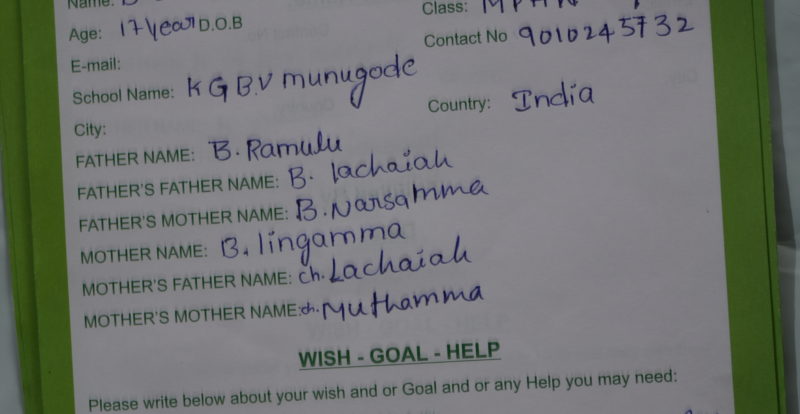 Name: B
Class: MPHW
Age: 17 year D.O.B
Contact No 9010245732
E-mail:
School Name: KGBV munugode
City:
Country: India
FATHER NAME: B. Ramulu
FATHER'S FATHER NAME: B. lachaiah
FATHER'S MOTHER NAME: B. Narsamma
MOTHER NAME: B. lingamma
MOTHER'S FATHER NAME: ch. Lachaiah
MOTHER'S MOTHER NAME: ch. Muthamma
WISH - GOAL - HELP
Please write below about your wish and or Goal and or any Help you may need: